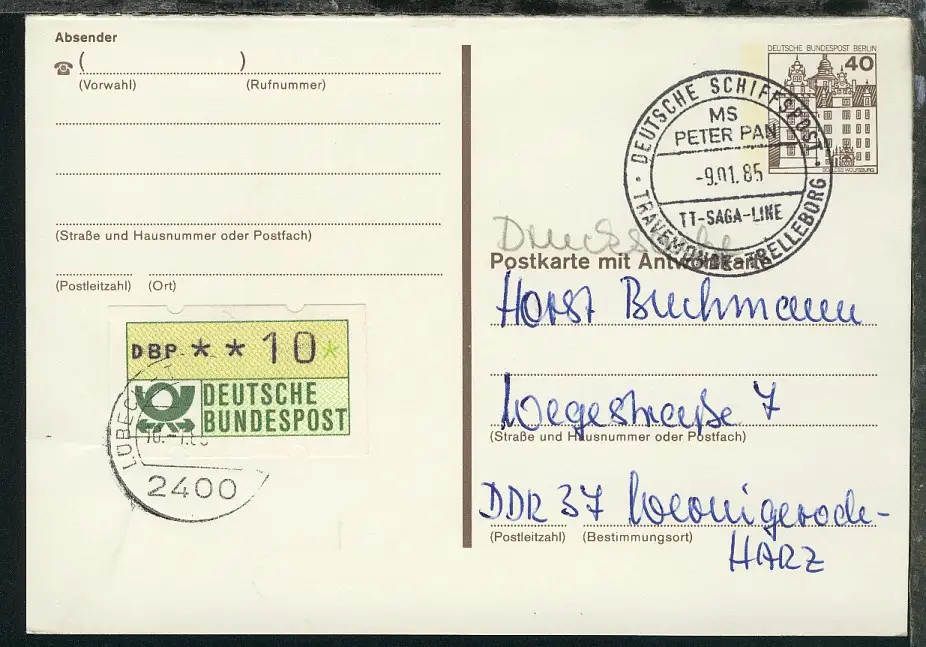 Absender
( )
(Vorwahl) (Rufnummer)
(Straße und Hausnummer oder Postfach)
(Postleitzahl) (Ort)
DBP * * 10*
DEUTSCHE
BUNDESPOST
LÜBECK
2400
DEUTSCHE BUNDESPOST BERLIN
40
SCHLOSS WOLFSBURG
DEUTSCHE SCHIFFSPOST
MS
PETER PAN
-9.01.85
TT-SAGA-LINE
TRAVEMÜNDE-TRELLEBORG
Drucksache
Postkarte mit Antwortkarte
Horst Buchmann
Wegestraße 7
(Straße und Hausnummer oder Postfach)
DDR 37 Wernigerode-
(Postleitzahl) (Bestimmungsort)
HARZ